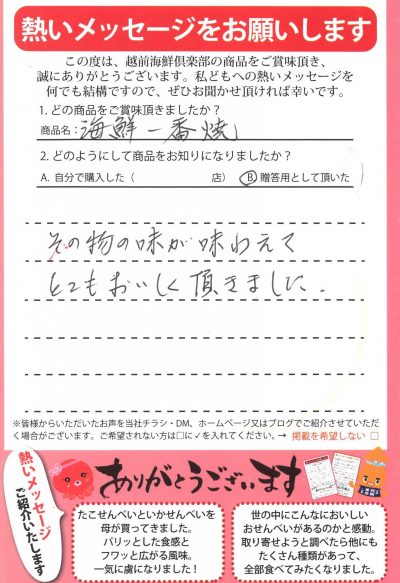 熱いメッセージをお願いします
この度は、越前海鮮倶楽部の商品をご賞味頂き、
誠にありがとうございます。私どもへの熱いメッセージを
何でも結構ですので、ぜひお聞かせ頂ければ幸いです。
1. どの商品をご賞味頂きましたか?
商品名: 海鮮一番焼
2. どのようにして商品をお知りになりましたか?
A. 自分で購入した( 店) B 贈答用として頂いた
その物の味が味わえて
とてもおいしく頂きました.
※皆様からいただいたお声を当社チラシ・DM、ホームページ又はブログでご紹介させていただ
く場合がございます。ご希望されない方は□に✓を入れてください。→ 掲載を希望しない □
熱いメッセージ
ご紹介いたします
ありがとうございます
たこせんべいといかせんべいを
母が買ってきました。
パリッとした食感と
フワッと広がる風味。
一気に虜になりました!
世の中にこんなにおいしい
おせんべいがあるのかと感動。
取り寄せようと調べたら他にも
たくさん種類があって、
全部食べてみたくなりました。